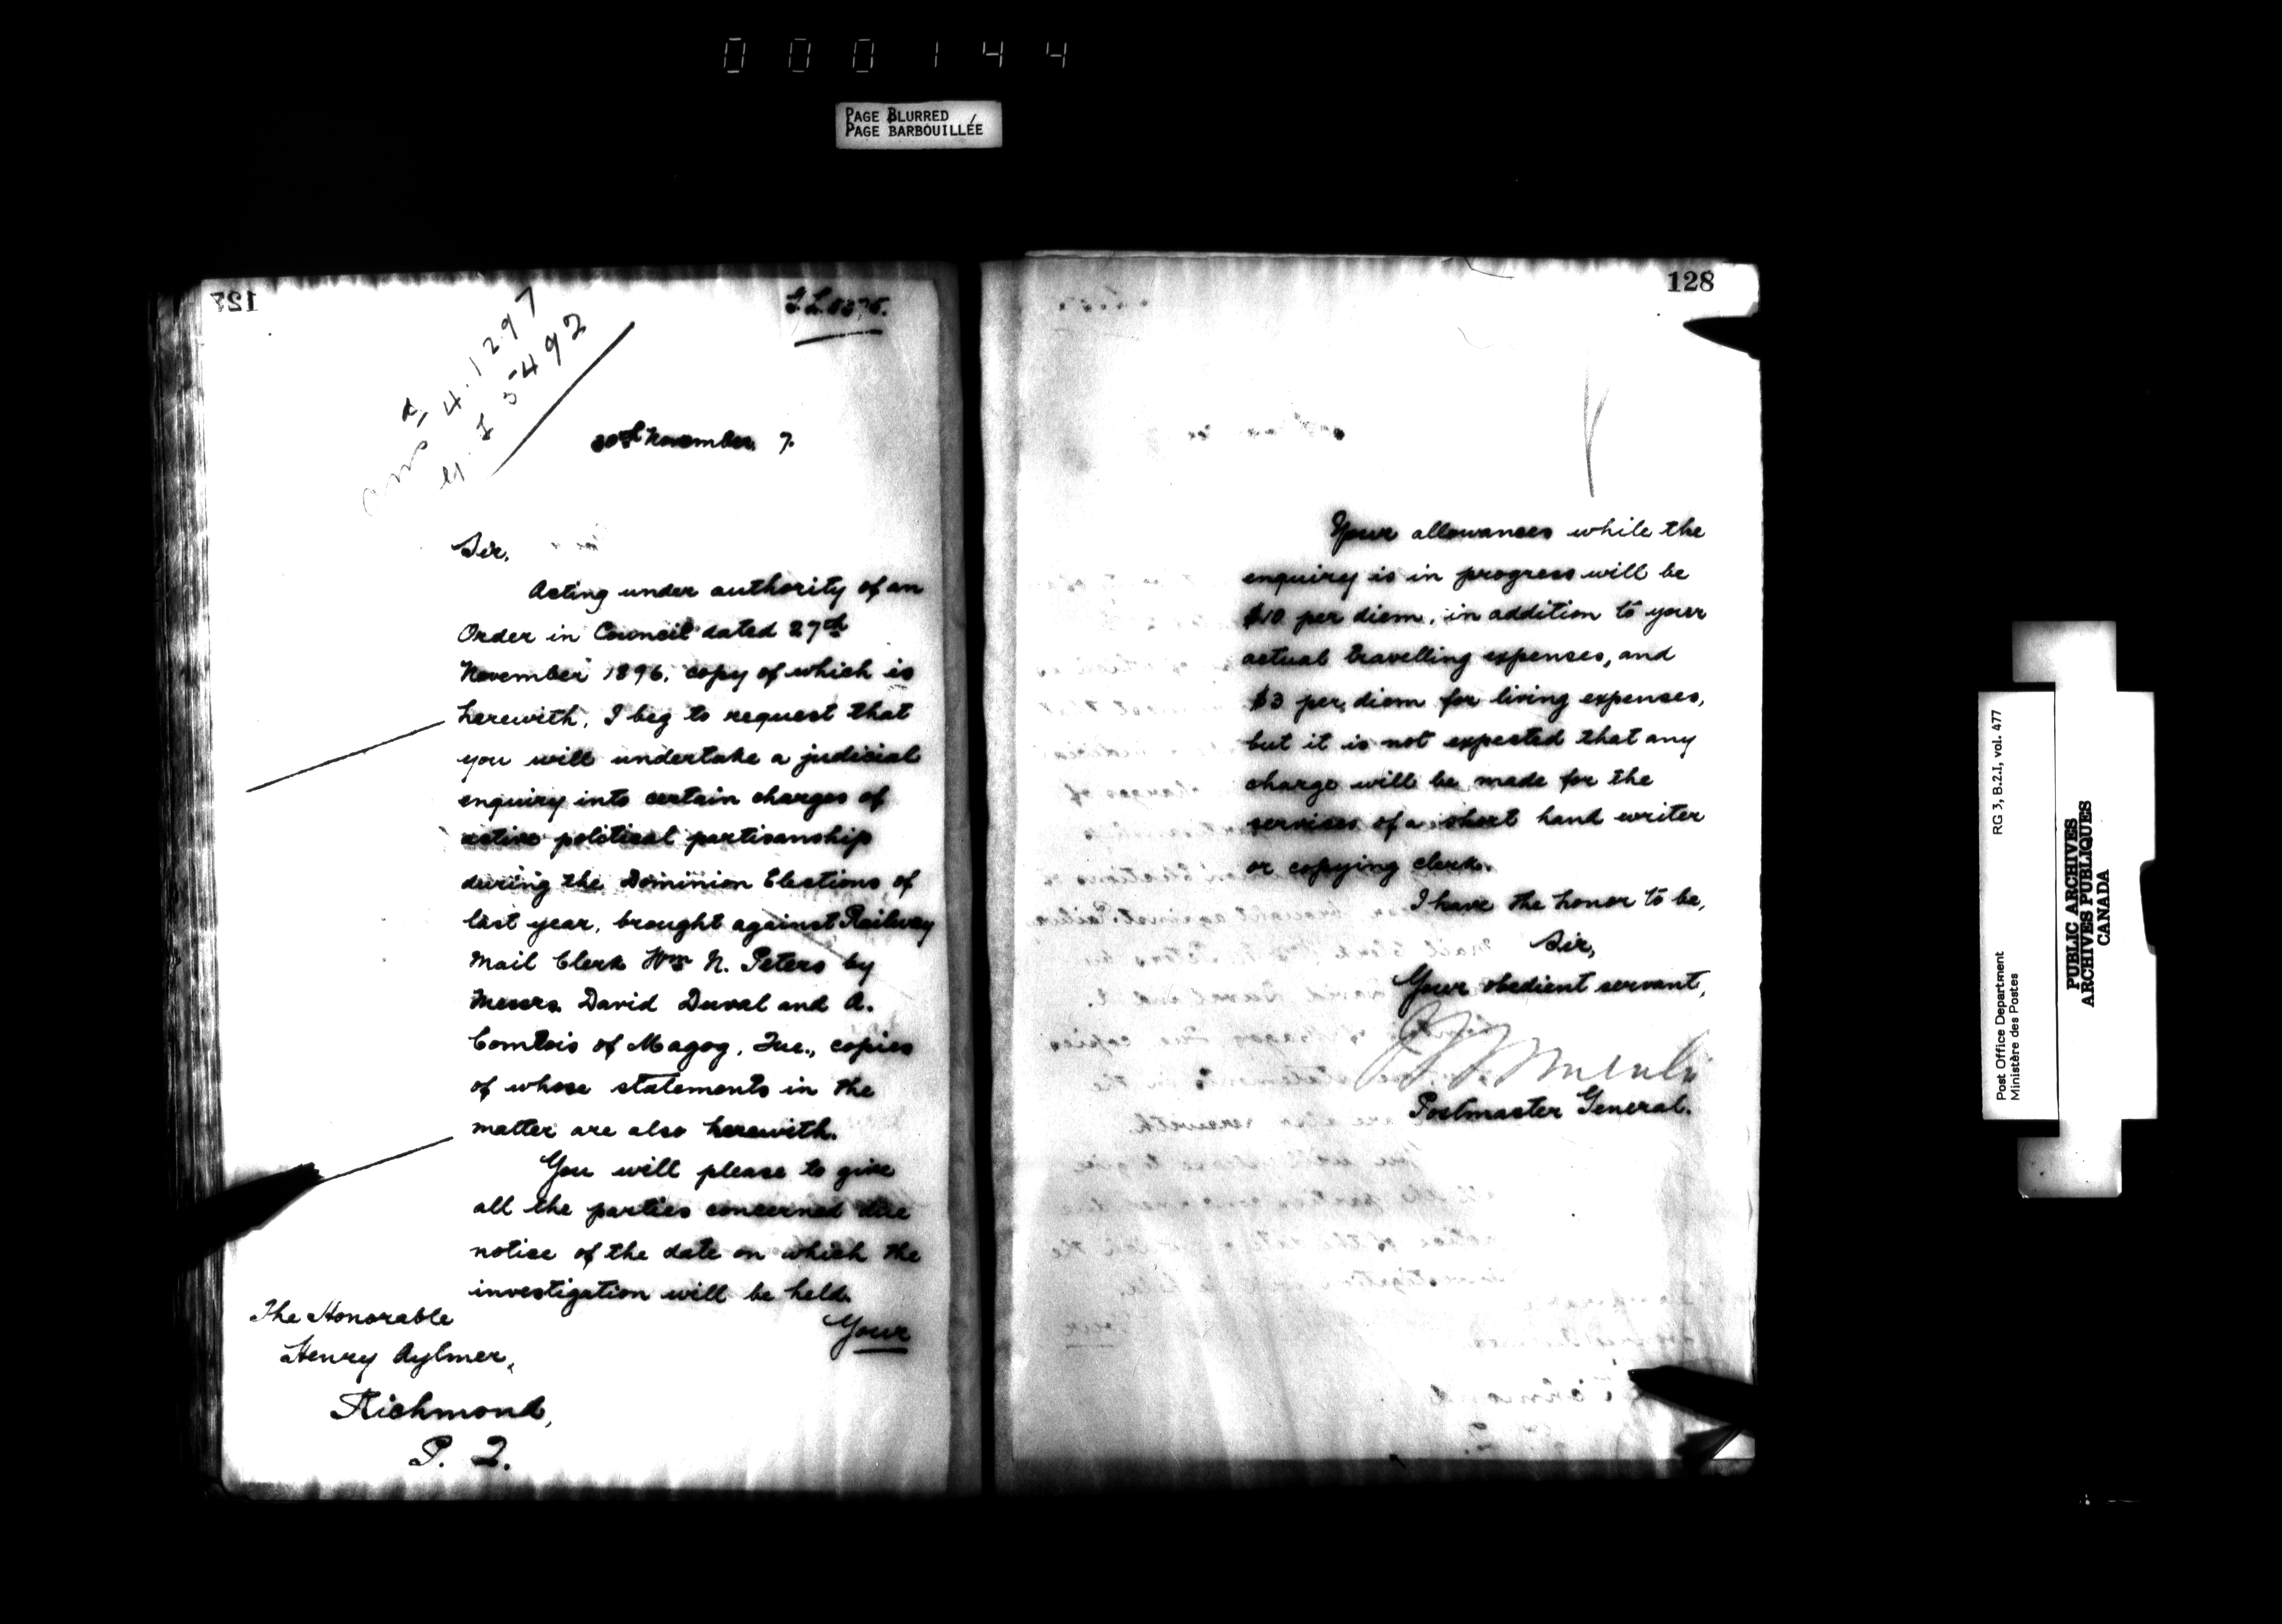 000144
PAGE BLURRED
PAGE BARBOUILLÉE
127
4.1297
5492
November 7.
Sir,
Acting under authority of an
Order in Council dated 27th
November 1896, copy of which is
herewith, I beg to request that
you will undertake a judicial
enquiry into certain charges of
active political partisanship
during the Dominion Elections of
last year, brought against Railway
Mail Clerk Wm N. Peters by
Messrs. David Duval and A.
Comtois of Magog, Que., copies
of whose statements in the
matter are also herewith.
You will please to give
all the parties concerned due
notice of the date on which the
investigation will be held.
Your
The Honorable
Henry Aylmer,
Richmond,
P. Q.
128
Your allowances while the
enquiry is in progress will be
$10 per diem, in addition to your
actual travelling expenses, and
$3 per diem for living expenses,
but it is not expected that any
charge will be made for the
services of a short hand writer
or copying clerk.
I have the honor to be,
Sir,
Your obedient servant,
Postmaster General.
Post Office Department
Ministère des Postes
RG 3, B.2.I, vol. 477
PUBLIC ARCHIVES
ARCHIVES PUBLIQUES
CANADA